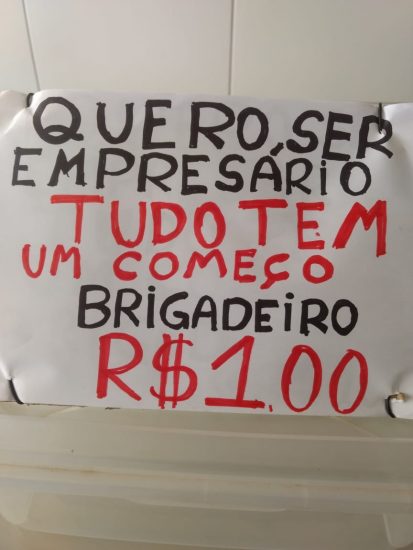 QUERO SER
EMPRESÁRIO
TUDO TEM
UM COMEÇO
BRIGADEIRO
R$1,00